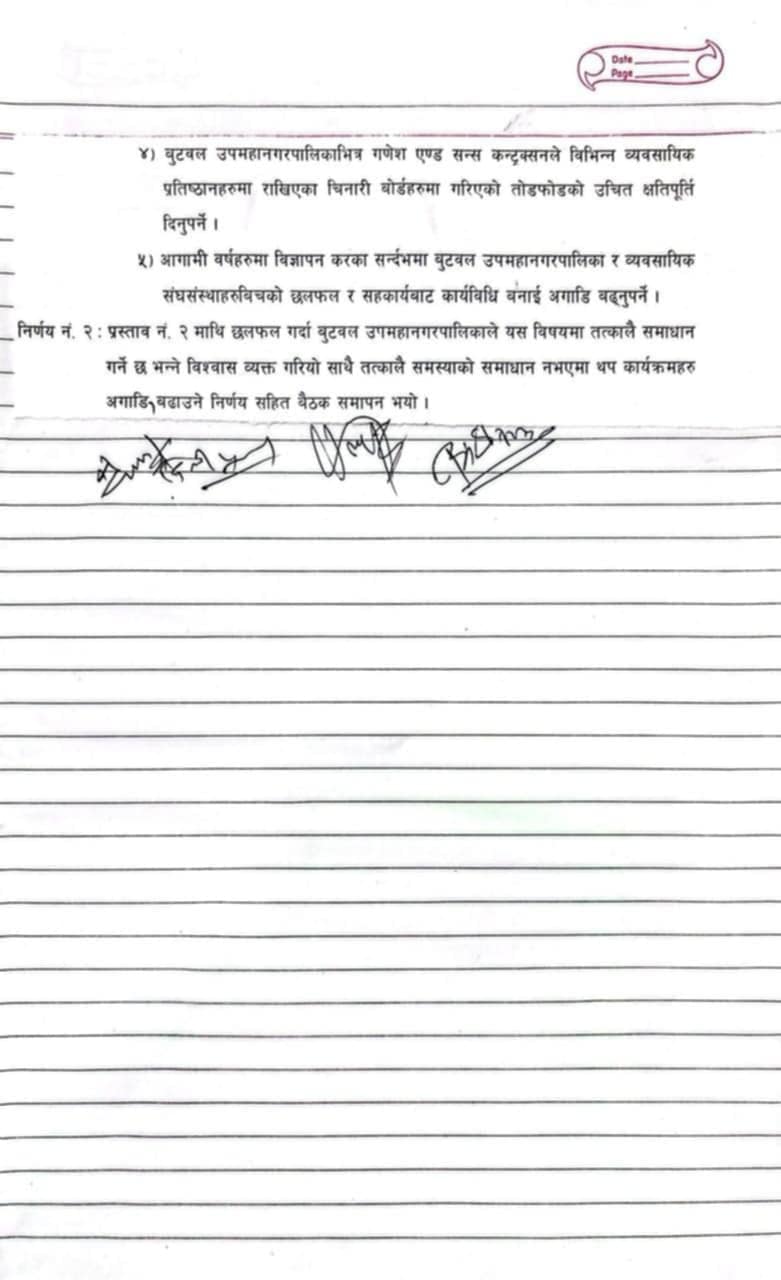 Date
Page
४) बुटवल उपमहानगरपालिकाभित्र गणेश एण्ड सन्स कन्ट्रक्सनले विभिन्न व्यवसायिक
प्रतिष्ठानहरुमा राखिएका चिनारी बोर्डहरुमा गरिएको तोडफोडको उचित क्षतिपूर्ति
दिनुपर्ने ।
५) आगामी वर्षहरुमा विज्ञापन करका सर्न्दभमा बुटवल उपमहानगरपालिका र व्यवसायिक
संघसंस्थाहरुबिचको छलफल र सहकार्यबाट कार्यविधि बनाई अगाडि बढ्नुपर्ने ।
निर्णय नं. २ : प्रस्ताव नं. २ माथि छलफल गर्दा बुटवल उपमहानगरपालिकाले यस विषयमा तत्कालै समाधान
गर्ने छ भन्ने विश्वास व्यक्त गरियो साथै तत्कालै समस्याको समाधान नभएमा थप कार्यक्रमहरु
अगाडि बढाउने निर्णय सहित बैठक समापन भयो ।